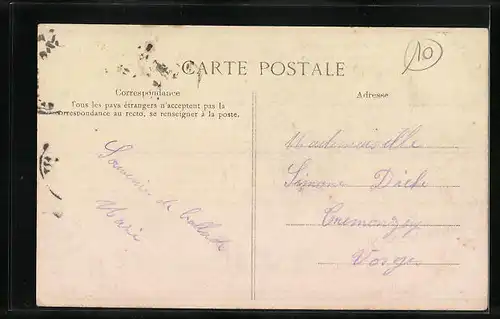 10
CARTE POSTALE
Correspondance
Tous les pays étrangers n'acceptent pas la
correspondance au recto, se renseigner à la poste.
Souvenir de ballade
Marie
Adresse
Mademoiselle
Simone
Cremonzey
Vosges